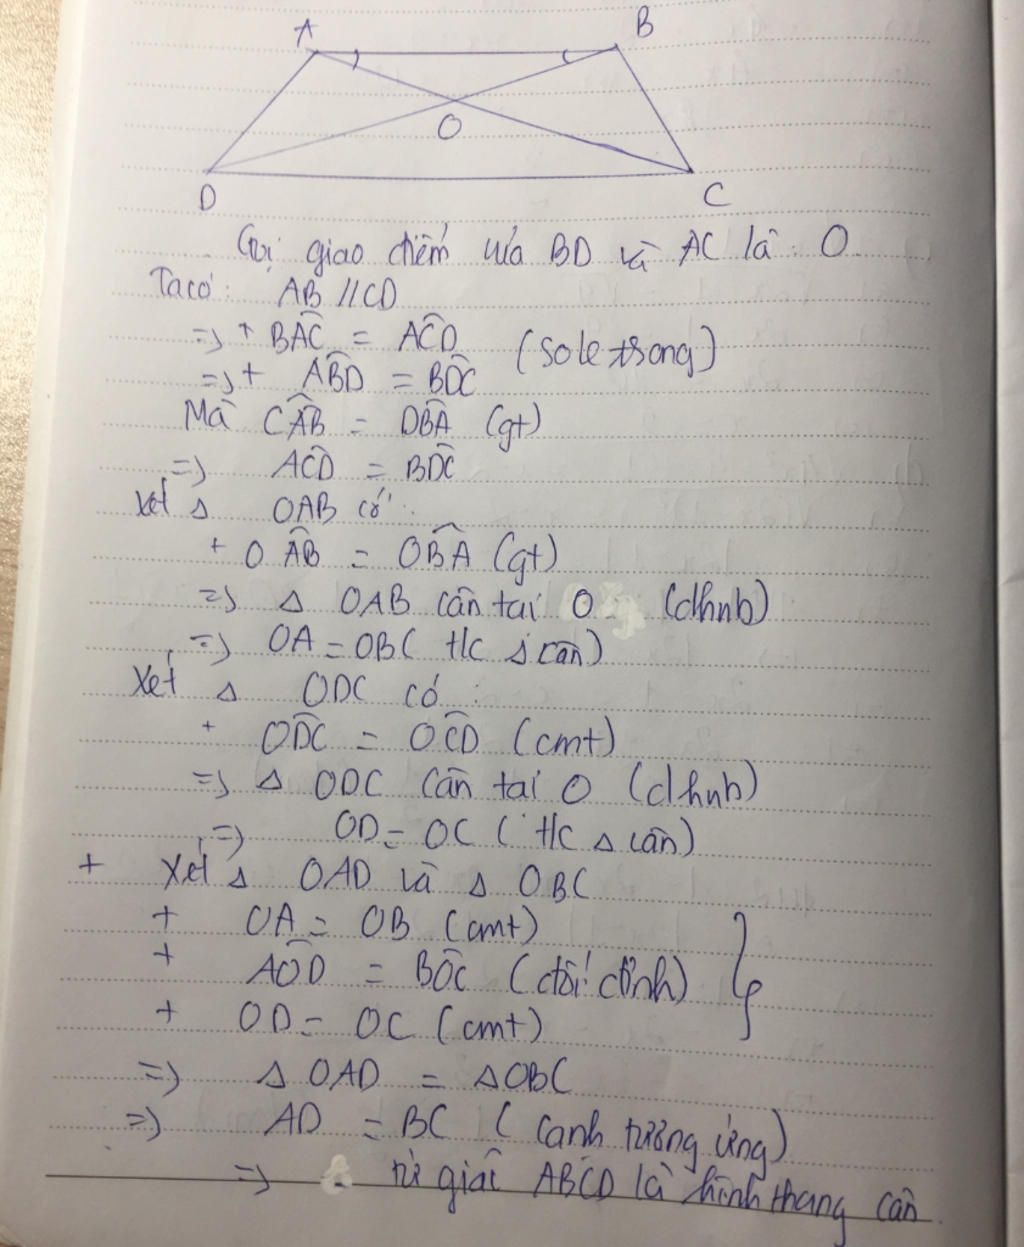 A B
O
D C
Gọi giao điểm của BD và AC là : O
Ta có : AB // CD
=> + BÂC = AĈD (so le trong)
=> + AB̂D = BD̂C
Mà CÂB = DB̂A (gt)
=> AĈD = BD̂C
Xét Δ OAB có :
+ OÂB = OB̂A (gt)
=> Δ OAB cân tại O (dhnb)
=> OA = OB ( t/c Δ cân)
Xét Δ ODC có :
+ OD̂C = OĈD (cmt)
=> Δ ODC cân tại O (dhnb)
=> OD = OC ( t/c Δ cân)
+ Xét Δ OAD và Δ OBC
+ OA = OB (cmt)
+ AÔD = BÔC (đối đỉnh)
+ OD = OC (cmt)
=> Δ OAD = Δ OBC
=> AD = BC ( cạnh tương ứng)
=> tứ giác ABCD là hình thang cân.